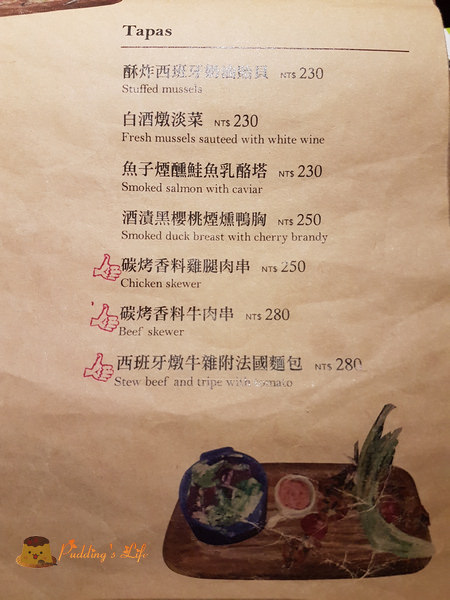 Tapas
酥炸西班牙 NT$ 230
Stuffed mussels
白酒燉淡菜 NT$ 230
Fresh mussels sauteed with white wine
魚子煙醺鮭魚乳酪塔 NT$ 230
Smoked salmon with caviar
酒漬黑櫻桃煙燻鴨胸 NT$ 250
Smoked duck breast with cherry brandy
碳烤香料雞腿肉串 NT$ 250
Chicken skewer
碳烤香料牛肉串 NT$ 280
Beef skewer
西班牙燉牛雜附法國麵包 NT$ 280
Stew beef and tripe with tomato
Pudding's Life